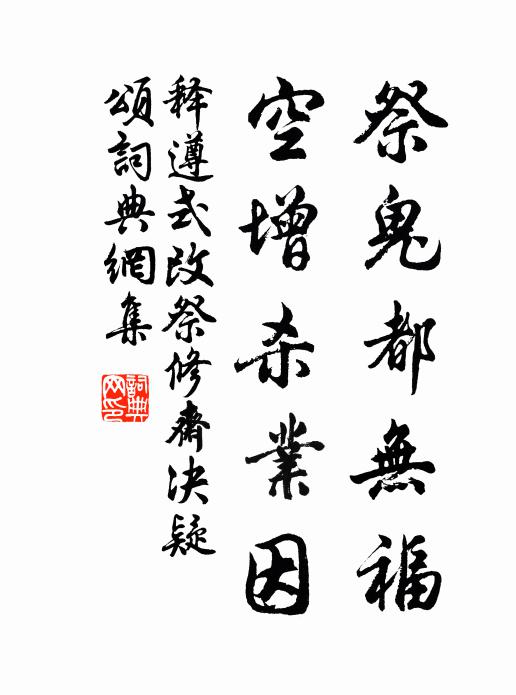 祭鬼都無福
空增杀業因
释遵式改祭修齋决疑
頌詞典網集
詞典
网印